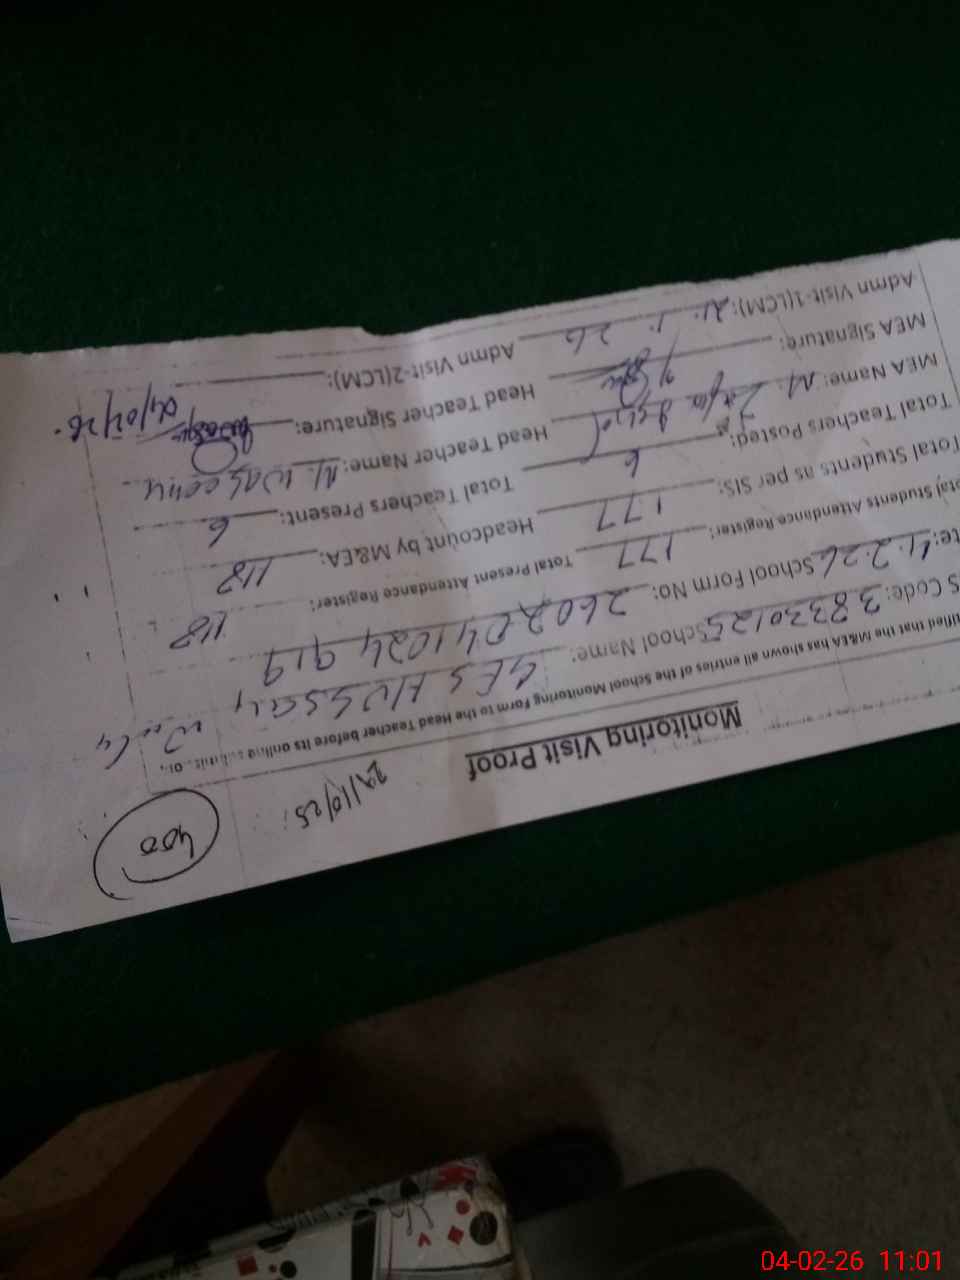 400
29/10/25
Monitoring Visit Proof
tified that the M&EA has shown all entries of the School Monitoring Form to the Head Teacher before its online
S Code: 38330125 School Name: GES HUSSAIN
te: 4.2.26 School Form No: 2602041024919
otal Students Attendance Register: 177 Total Present Attendance Register: 118
Total Students as per SIS: 177 Headcount by M&EA: 118
Total Teachers Posted: 6 Total Teachers Present: 6
MEA Name: M. Head Teacher Name: M. Waseem
MEA Signature: Head Teacher Signature: 04/02/26.
Admn Visit-1(LCM): 21.1.26 Admn Visit-2(LCM):
04-02-26 11:01